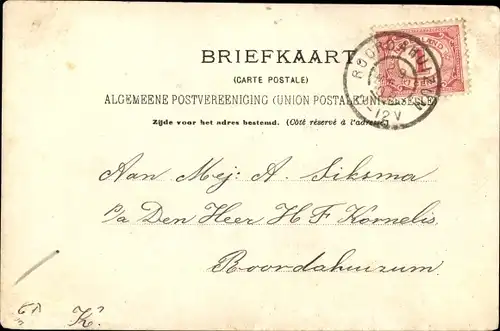 BRIEFKAART
(CARTE POSTALE)
ALGEMEENE POSTVEREENIGING (UNION POSTALE UNIVERSELLE)
Zijde voor het adres bestemd. (Côté réservé à l'adresse)
Aan Mej: A. Siksma
p/a Den Heer H F Kornelis
Roordahuizum.
K.